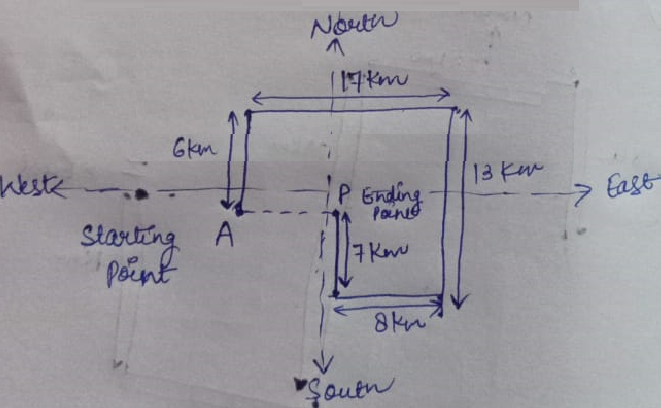 North
17Km
6km
13 Km
West
East
P Ending
Point
Starting
Point
A
7Km
8Km
South